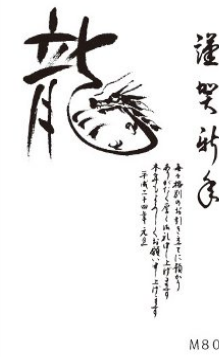 謹賀新年
龍
毎々格別のお引き立てに預かり
ありがたく厚く御礼申し上げます
本年もよろしくお願い申し上げます
平成二十四年 元旦
M80